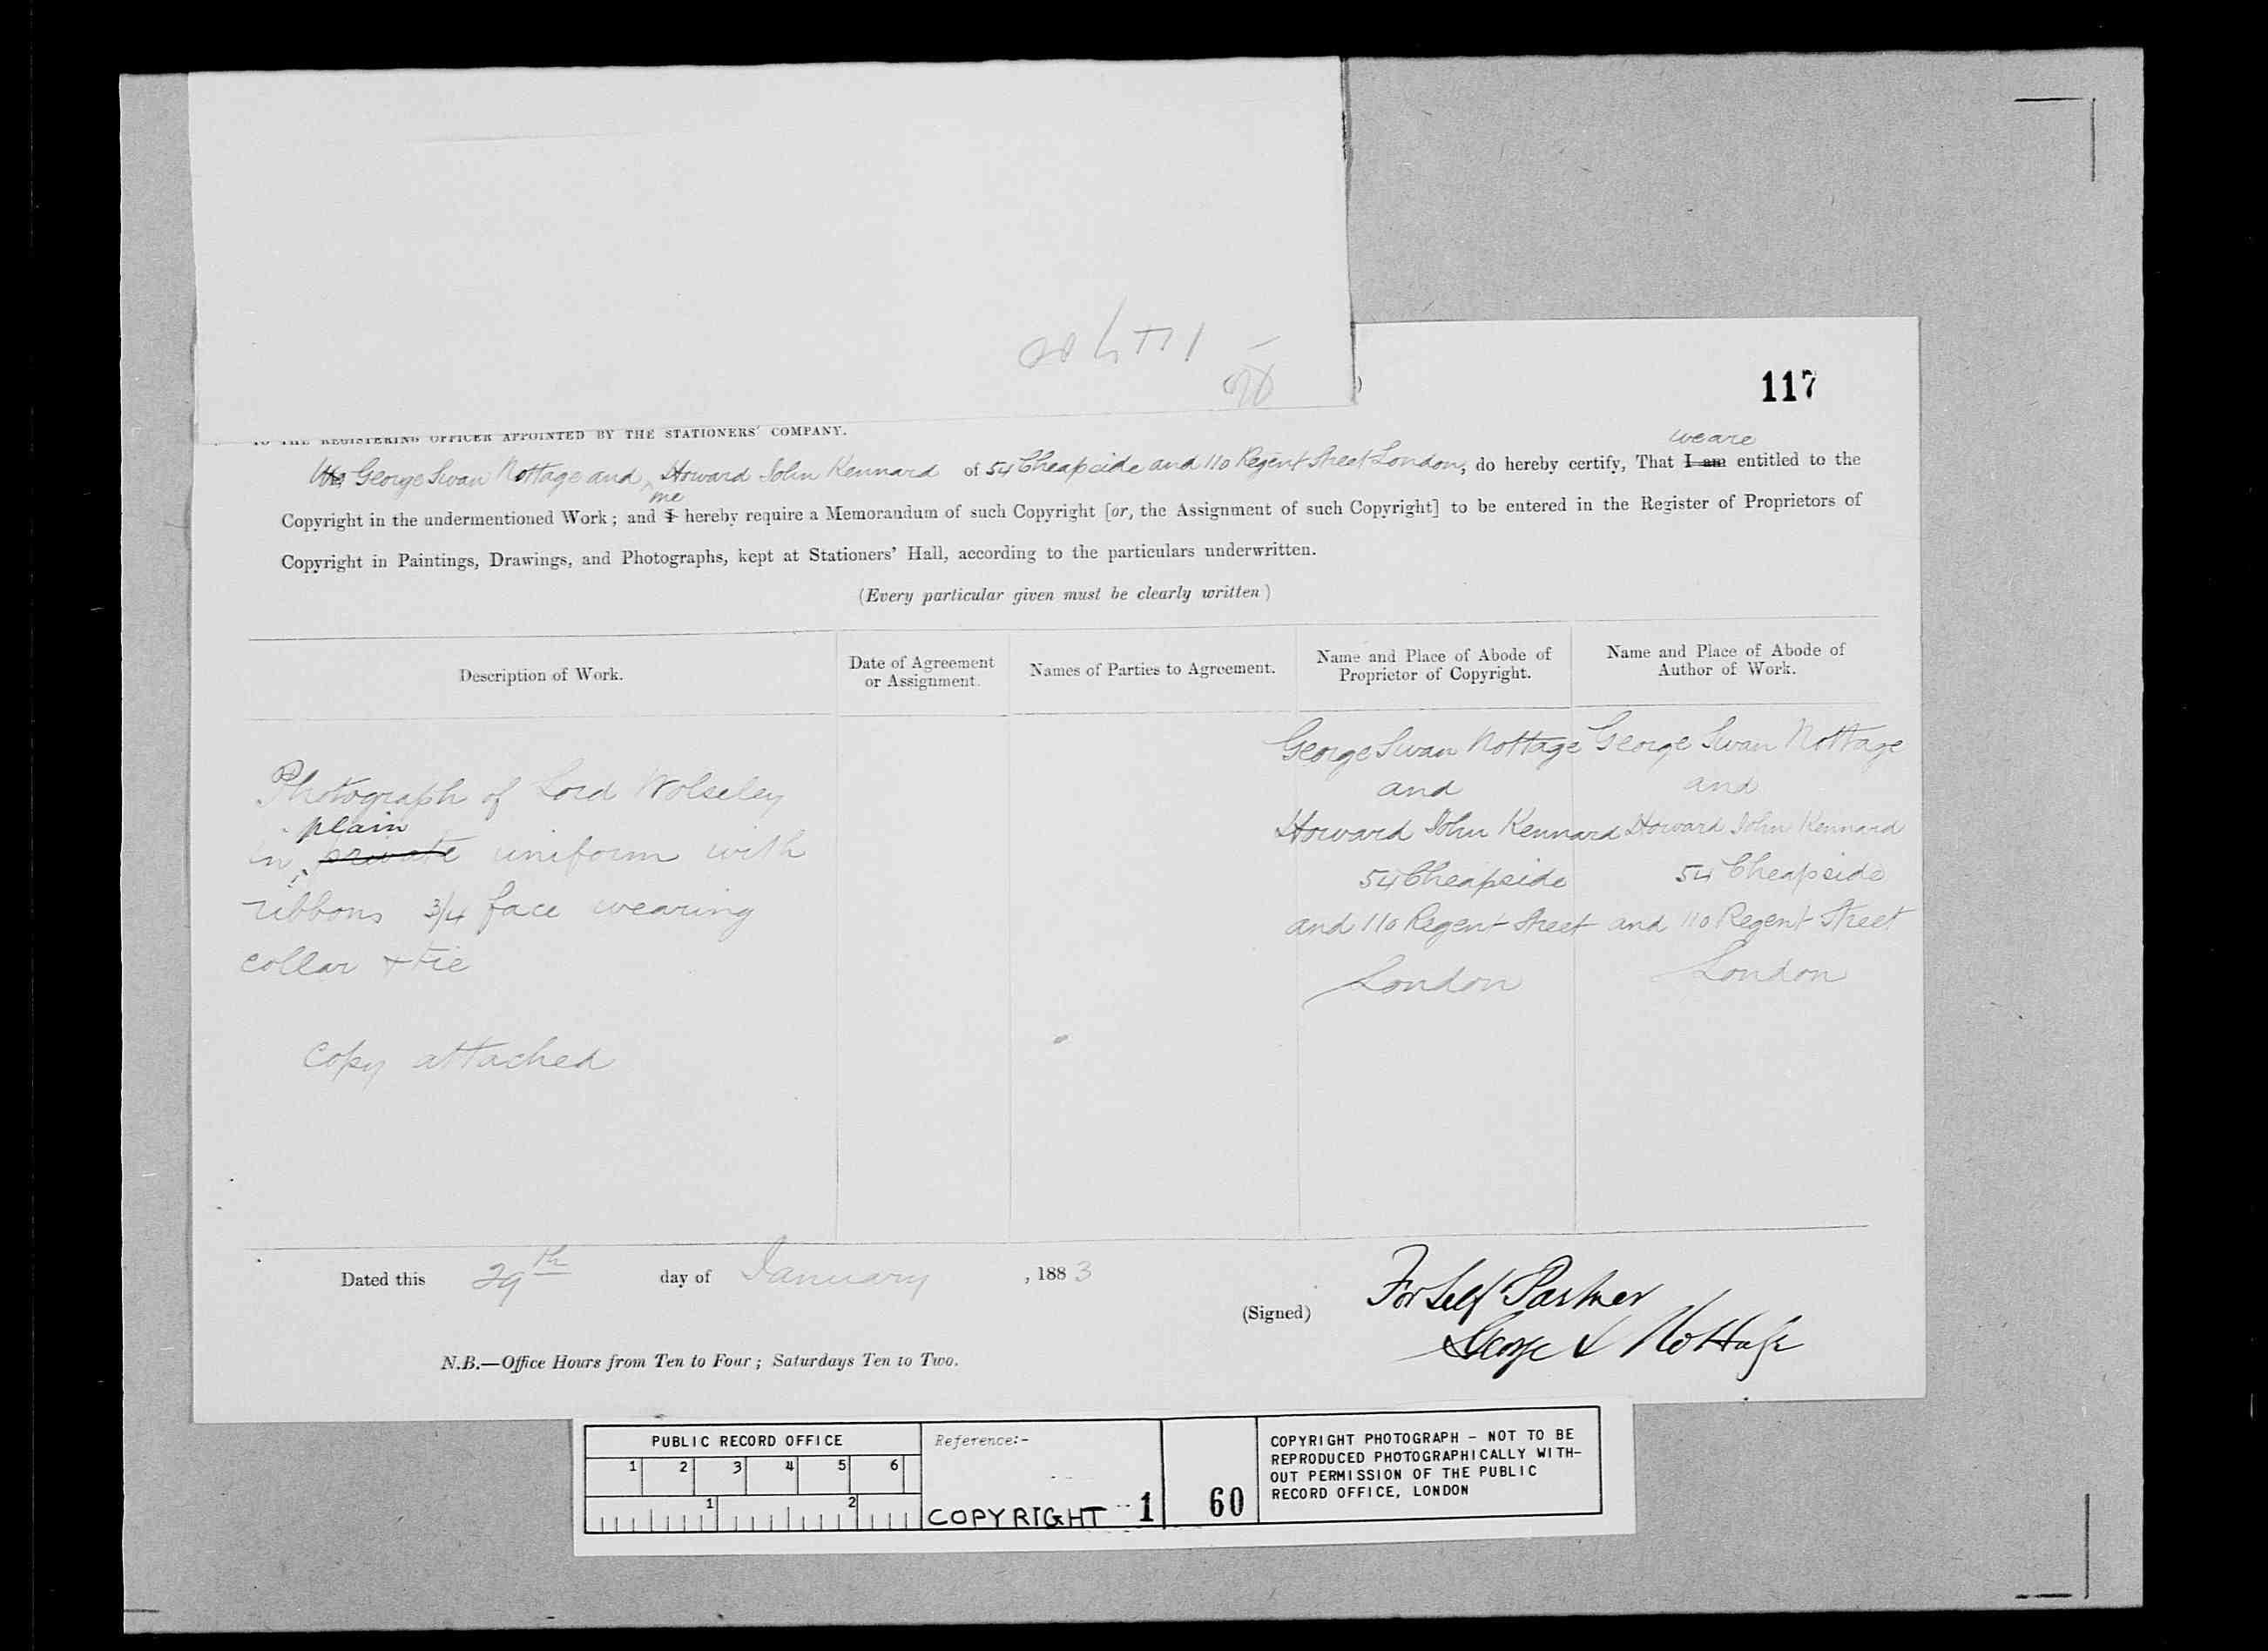 117
TO THE REGISTERING OFFICER APPOINTED BY THE STATIONERS' COMPANY.
we are
We George Swan Nottage and Howard John Kennard of 54 Cheapside and 110 Regent Street London, do hereby certify, That I am entitled to the
me
Copyright in the undermentioned Work; and I hereby require a Memorandum of such Copyright [or, the Assignment of such Copyright] to be entered in the Register of Proprietors of
Copyright in Paintings, Drawings, and Photographs, kept at Stationers' Hall, according to the particulars underwritten.
(Every particular given must be clearly written)
Description of Work.
Date of Agreement
or Assignment.
Names of Parties to Agreement.
Name and Place of Abode of
Proprietor of Copyright.
Name and Place of Abode of
Author of Work.
Photograph of Lord Wolseley
plain
in private uniform with
ribbons 3/4 face wearing
collar & tie
Copy attached
George Swan Nottage
and
Howard John Kennard
54 Cheapside
and 110 Regent Street
London
George Swan Nottage
and
Howard John Kennard
54 Cheapside
and 110 Regent Street
London
Dated this 29th day of January, 1883
(Signed)
For Self & Partner
George S Nottage
N.B.—Office Hours from Ten to Four; Saturdays Ten to Two.
PUBLIC RECORD OFFICE
1 2 3 4 5 6
1 2
Reference:-
COPYRIGHT 1
60
COPYRIGHT PHOTOGRAPH - NOT TO BE
REPRODUCED PHOTOGRAPHICALLY WITH-
OUT PERMISSION OF THE PUBLIC
RECORD OFFICE, LONDON